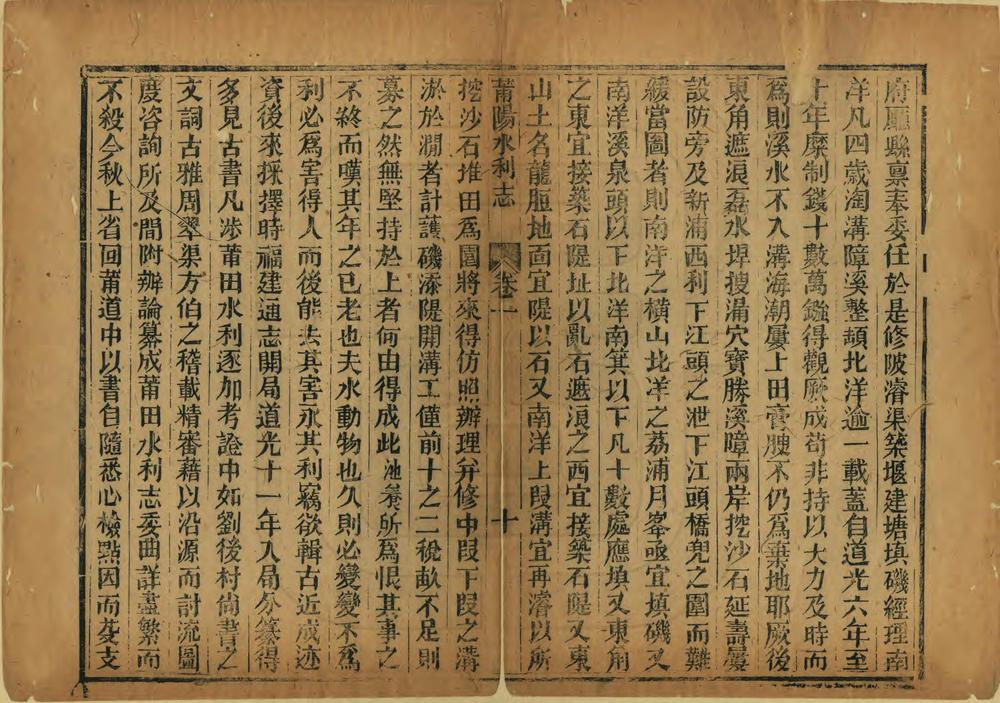 府廳縣稟奉委任於是修陂濬渠築堰建塘填磯經理南
洋凡四歲淘溝障溪整頓北洋逾一載蓋自道光六年至
十年糜制錢十數萬鏹得觀厥成苟非持以大力及時而
為則溪水不入溝海潮屢上田膏腴不仍為棄地耶厥後
東角遮浪磊水埕搜漏穴寶勝溪障兩岸挖沙石延壽屢
設防旁及新浦西利下江頭之泄下江頭橋兜之圍而難
緩當圖者則南洋之橫山北洋之荔浦月峯亟宜填磯又
南洋溪泉頭以下北洋南箕以下凡十數處應填又東角
之東宜接築石隄址以亂石遮浪之西宜接築石隄又東
山土名龍脰地面宜隄以石又南洋上段溝宜再濬以所
莆陽水利志 卷一 十
挖沙石堆田為園將來得仿照辦理并修中段下段之溝
淤於澗者計護磯添隄開溝工僅前十之二稅畝不足則
募之然無堅持於上者何由得成此池養所為恨其事之
不終而嘆其年之已老也夫水動物也久則必變變不為
利必為害得人而後能去其害永其利竊欲輯古近成迹
資後來採擇時福建通志開局道光十一年入局分纂得
多見古書凡涉莆田水利逐加考證中如劉後村尚書之
文詞古雅周翠渠方伯之稽載精審藉以沿源而討流圖
度咨詢所及間附辦論纂成莆田水利志委曲詳盡繁而
不殺今秋上省回莆道中以書自隨悉心檢點因而芟支